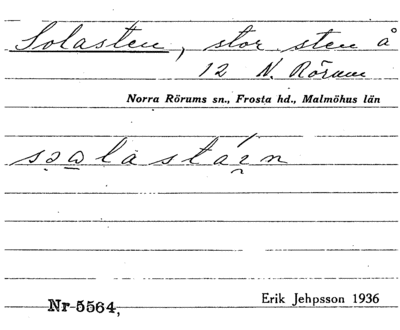 Solasten, stor sten å
12 N. Rörum
Norra Rörums sn., Frosta hd., Malmöhus län
Erik Jehpsson 1936
Nr 5564,